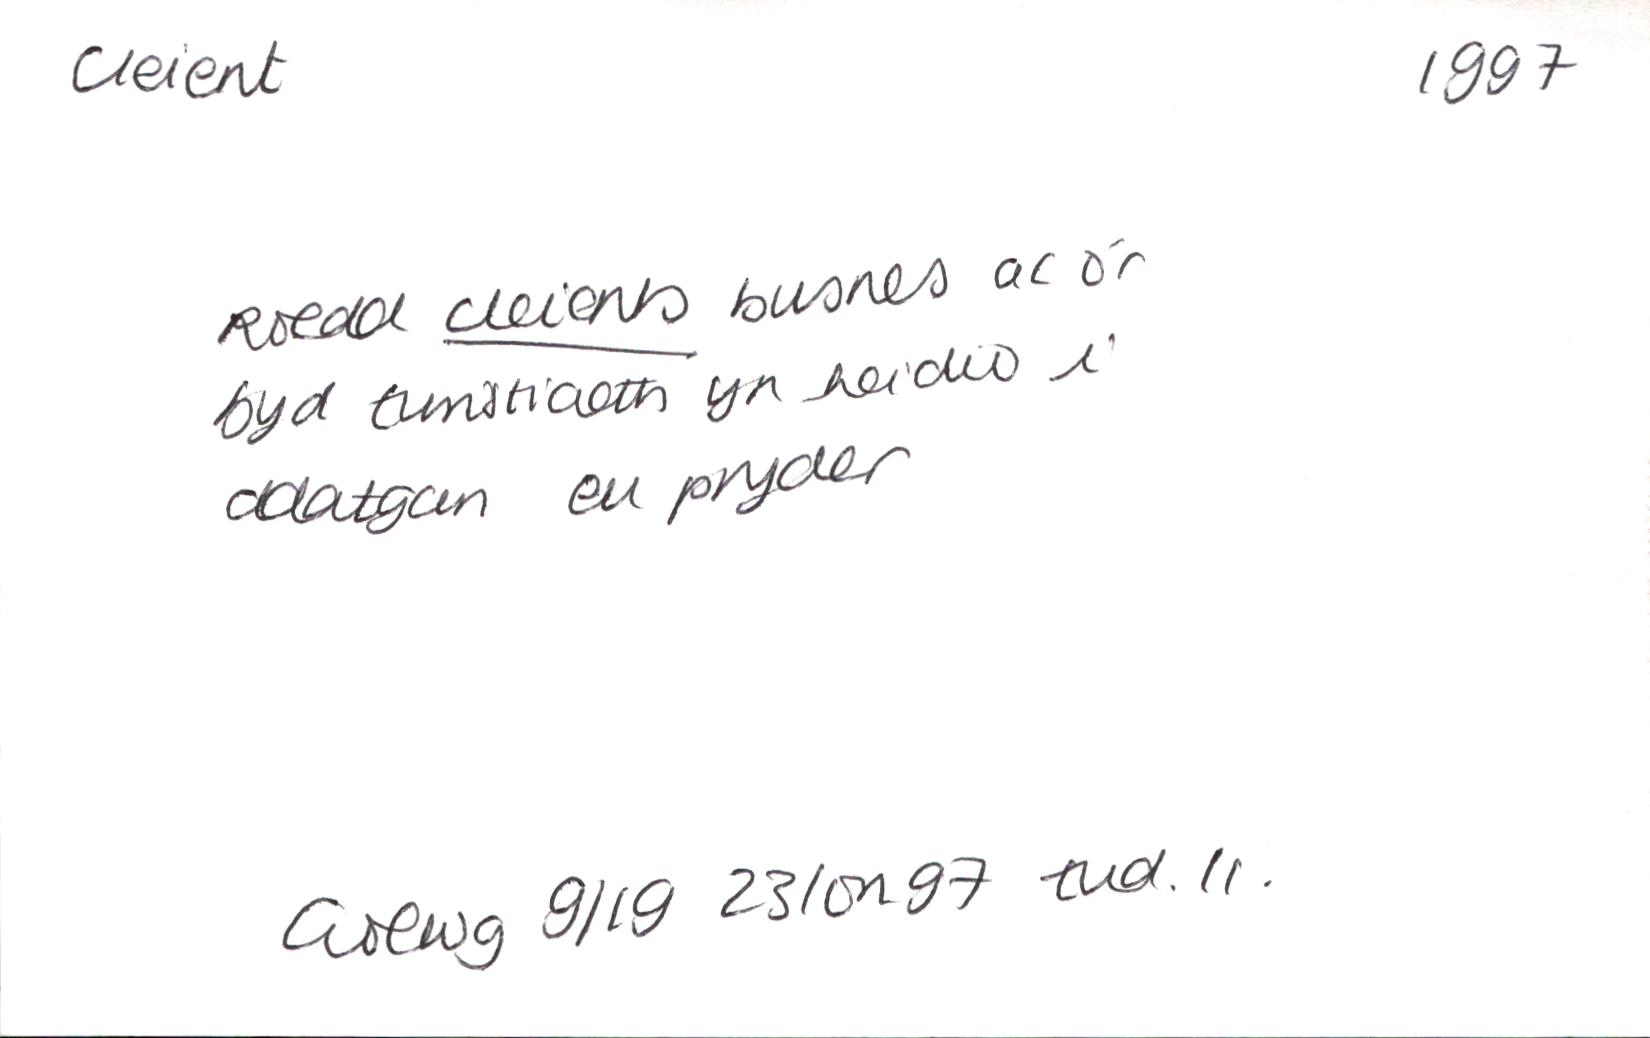 Cleient 1997
Roedd cleients busnes ac o'r
byd twristiaeth yn heidio i'
ddatgan eu pryder
Golwg 9/19 23 Ion 97 tud. 11.